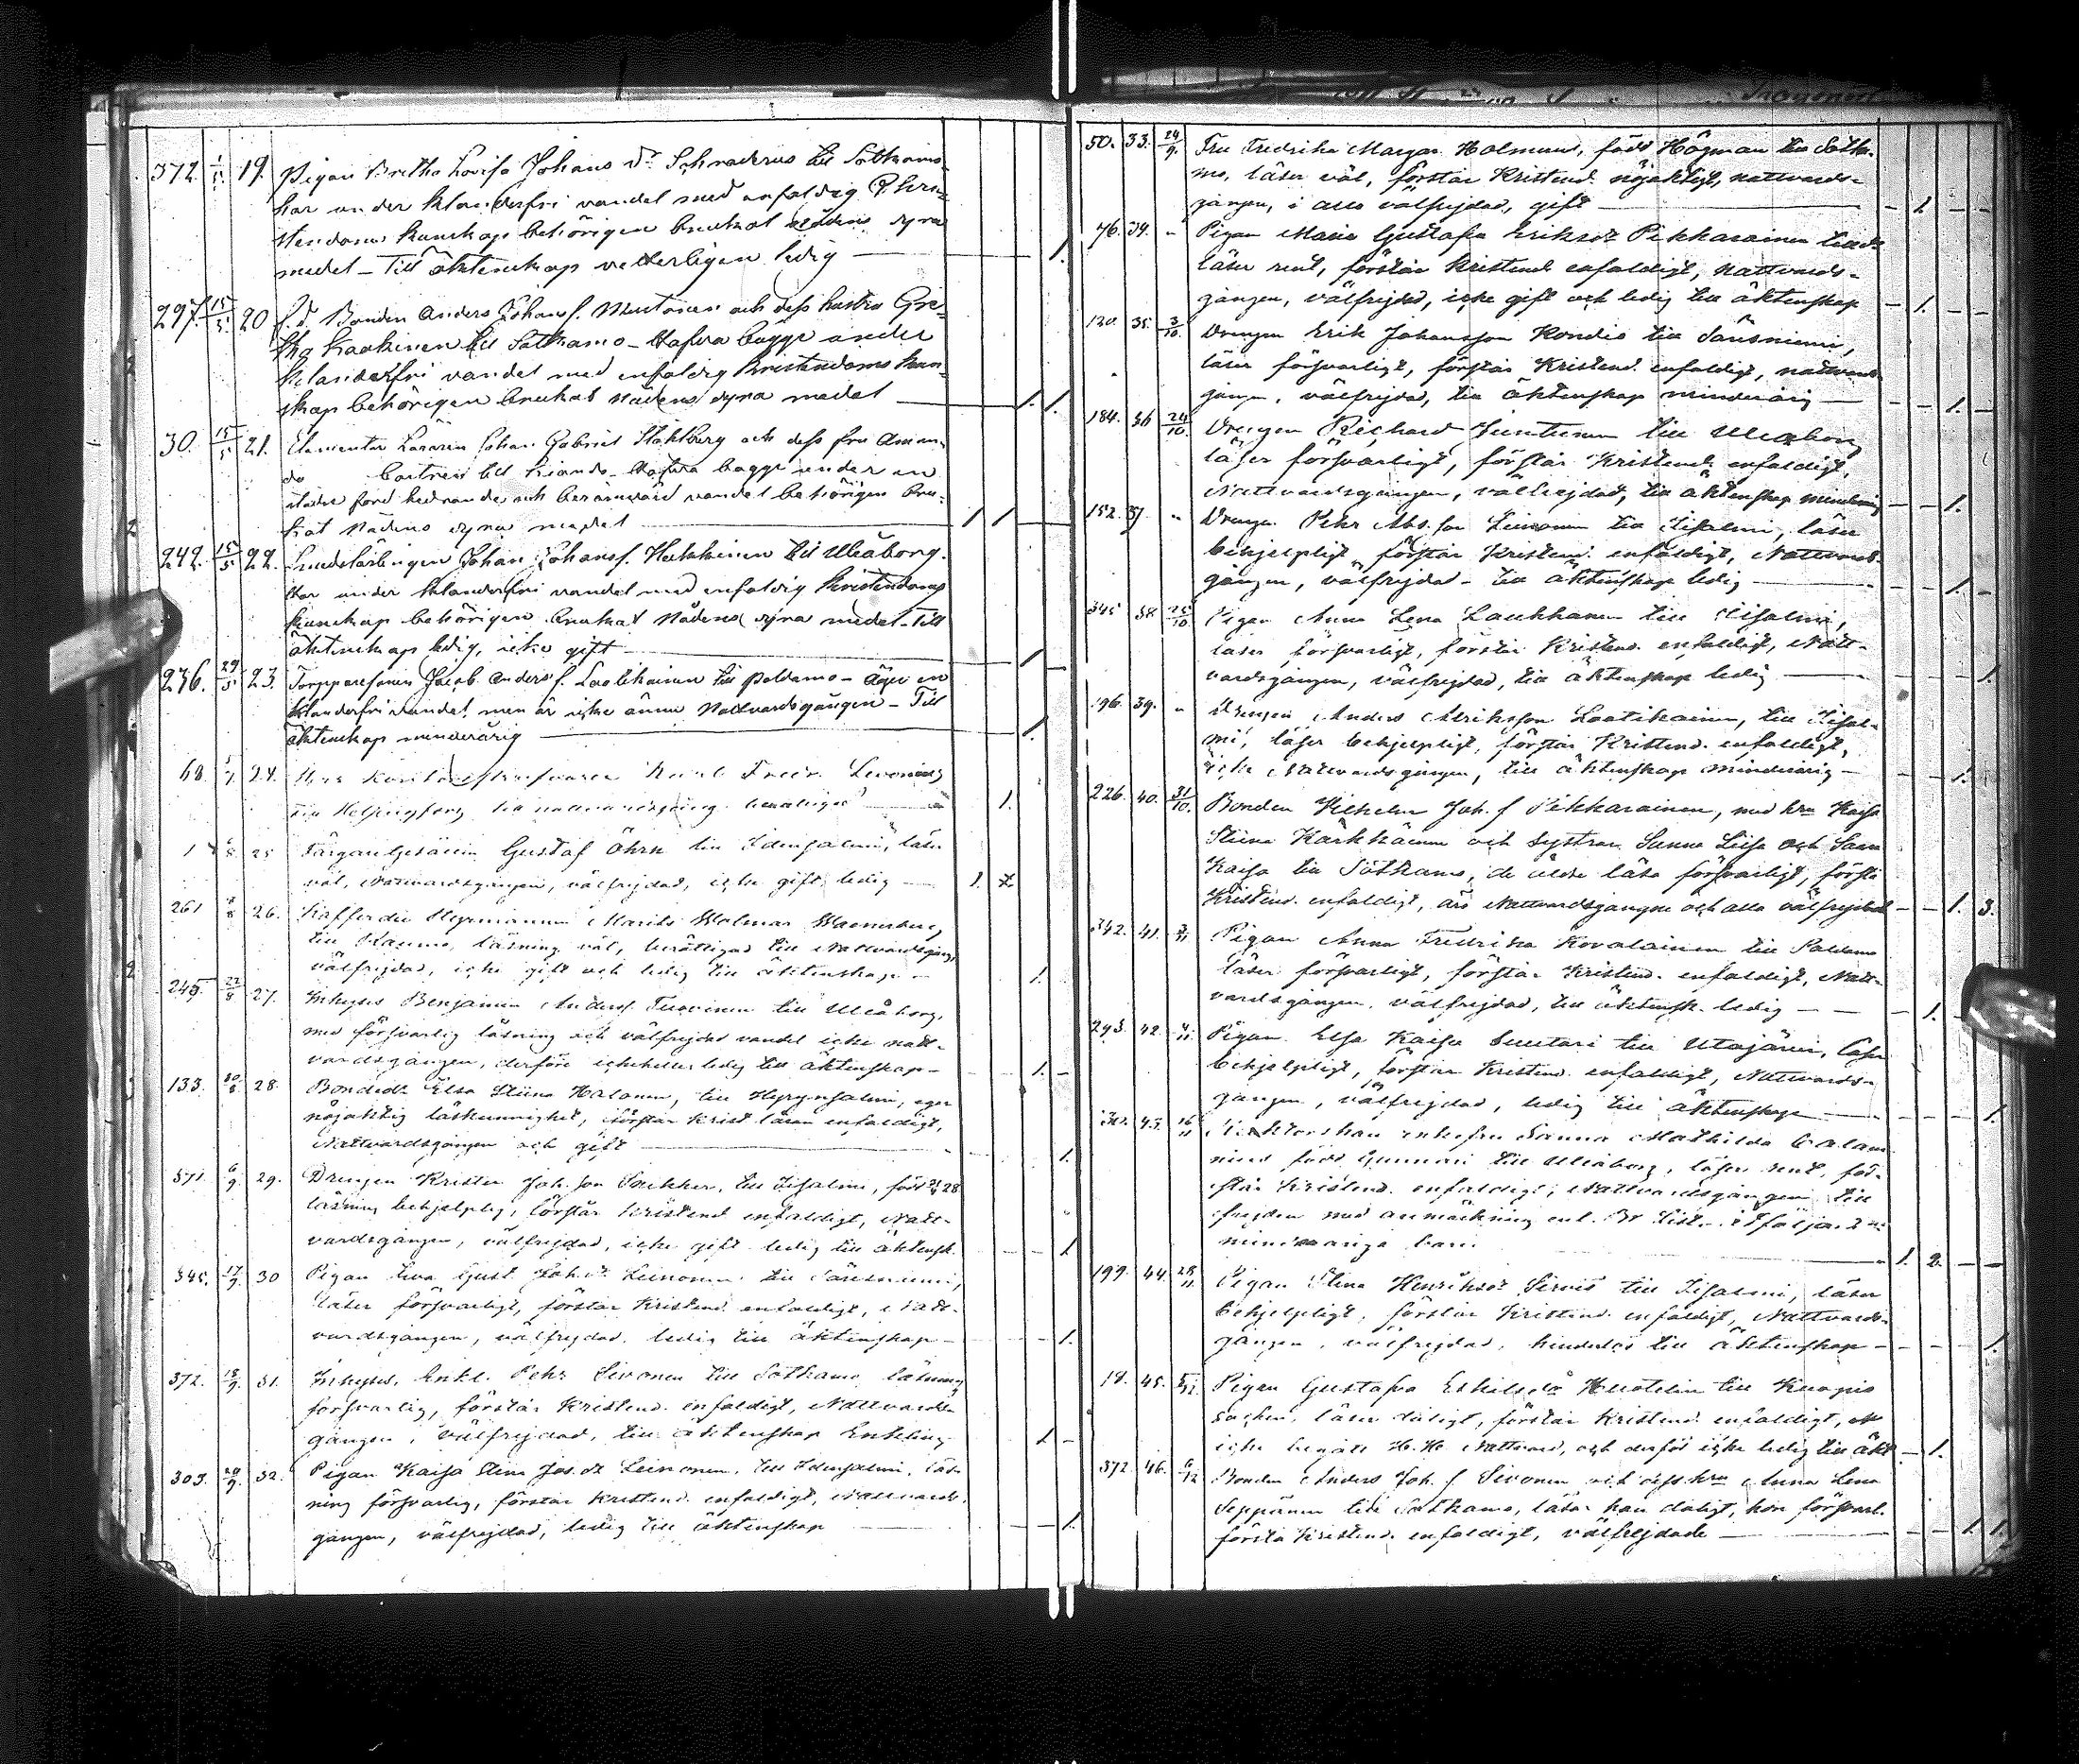 372. 1/5 19. Pigan Bretha Lovisa Johans dr Schroderus till Sotkamo
har under klanderfri vandel med enfaldig Chri-
stendoms kunskap behörigen brukat nådens dyra
medel – Till äktenskap vetterligen ledig — 1.
297. 15/5 20 f.d. Bonden Anders Johans s. och dess hustru Gre-
tha Kaakinen till Sotkamo – Hafva bägge under
klanderfri vandel med enfaldig kristendoms kun-
skap behörigen brukat nådens dyra medel — 1. 1.
30. 15/5 21. Elementar Läraren Johan Gabriel Ståhlberg och dess fru Aman-
da Castrén till — Hafva bägge under en
hedrande och berömvärd vandel behörigen bru-
kat nådens dyra medel — 1 1
242. 15/5 22. Johan Johanss. Hakkinen till Uleåborg.
Har under klanderfri vandel med enfaldig kristendoms
kunskap behörigen brukat nådens dyra medel – Till
äktenskap ledig, icke gift — 1
236. 29/5 23. Torpparesonen Jacob Anders s. Laatikainen till Paldamo – Äger en
klanderfri vandel, men är icke ännu Nattvardsgången – Till
äktenskap minderårig — 1.
68. 24. Fredr. Levonius
till Helsingfors, till nattvardsgång berättigad — 1.
25 Färgaregesällen Gustaf Öhrn till Idensalmi, läser
väl, Nattvardsgången, välfrejdad, icke gift, ledig — 1.
261 26. Styrmannen Walmar
till Raumo, läsning väl, berättigad till Nattvardsgång,
välfrejdad, icke gift och ledig till äktenskap – 1.
245 22/8 27. Inhyses Benjamin Anderss. Tuovinen till Uleåborg,
med försvarlig läsning och välfrejdad vandel icke natt-
vardsgången, derföre icke heller ledig till äktenskap – 1.
133. 30/8 28. Bondedr Elsa Stiina Halonen, till Hyrynsalmi, eger
nöjaktig läskunnighet, förstår Krist. läran enfaldigt,
Nattvardsgången och gift — 1.
371. 6/9 29. Drengen Krister Joh. son till Iisalmi, född 28
läsning behjelplig, förstår Kristend. enfaldigt, Natt-
vardsgången, välfrejdad, icke gift ledig till äktensk. 1
345. 17/9 30 Pigan Eva Gust. Joh. dr Leinonen till Säresniemi,
läser försvarligt, förstår Kristend. enfaldigt, Natt-
vardsgången, välfrejdad, ledig till äktenskap – 1.
372. 18/9 31. Inhyses Enkl. Pehr Sivonen till Sotkamo, läsning
försvarlig, förstår Kristend. enfaldigt, Nattvards-
gången, välfrejdad, till äktenskap Enkling 1
303. 20/9 32. Pigan Kaisa Stina Jos. dr Leinonen, till Idensalmi, läs-
ning försvarlig, förstår Kristend. enfaldigt, Nattvards-
gången, välfrejdad, ledig till äktenskap — 1.
50. 33. 24/9 Fru Fredrika Margar. Holmlund, född Högman till Sotka-
mo, läser väl, förstår Kristend. nöjaktigt, nattvards-
gången, i allo välfrejdad, gift — 1
76. 34. " Pigan Maria Gustafva Eriksdr Pikkarainen
läser rent, förstår Kristend. enfaldigt, nattvards-
gången, välfrejdad, icke gift och ledig till äktenskap – 1.
120. 35. 3/10 Drengen Erik Johansson Kondio till Säresniemi,
läser försvarligt, förstår Kristend. enfaldigt, nattvards-
gången, välfrejdad, till äktenskap minderårig – 1.
184. 36 24/10. Drengen Richard Juntunen till Uleåborg
läser försvarligt, förstår Kristend. enfaldigt,
Nattvardsgången, välfrejdad, till äktenskap minderårig – 1.
152. 37. " Drengen Pehr Abr. son Leinonen till Iisalmi, läser
behjelpligt, förstår Kristend. enfaldigt, Nattvards-
gången, välfrejdad – till äktenskap ledig — 1.
345 38 25/10 Pigan Anna Lena Laukkanen till Iisalmi,
läser försvarligt, förstår Kristend. enfaldigt, Natt-
vardsgången, välfrejdad, till äktenskap ledig — 1.
196. 39. " Drengen Anders Alriksson Laatikainen, till Iisal-
mi, läser behjelpligt, förstår Kristend. enfaldigt,
icke Nattvardsgången, till äktenskap minderårig – 1.
226. 40. 31/10. Bonden Wilhelm Joh. s. Pikkarainen, med hru Kaisa
Stiina Karkkainen och systrar Sanna Liisa och Sara
Kaisa till Sotkamo, de äldre läsa försvarligt, förstå
Kristend. enfaldigt, äro Nattvardsgångne och alla välfrejdade – 1. 3.
342. 41. Pigan Anna Fredrika Kovalainen till Paldamo
läser försvarligt, förstår Kristend. enfaldigt, Natt-
vardsgången, välfrejdad, till äktensk. ledig – 1.
293. 42. 4/11 Pigan Elsa Kaisa Suutari till Utajärvi, läser
behjelpligt, förstår Kristend. enfaldigt, Nattvards-
gången, välfrejdad, ledig till äktenskap — 1.
43. 16/11 enkefru Sanna Mathilda Calam-
nius född till Uleåborg, läser rent, för-
står Kristend. enfaldigt, Nattvardsgången till
frejden med anmärkning
minderåriga barn. 1. 2.
199. 44. 28/11 Pigan Stina Henriksdr Sirviö till Iisalmi, läser
behjelpligt, förstår Kristend. enfaldigt, Nattvards-
gången, välfrejdad, hinderlös till äktenskap – 1.
18. 45. 5/12 Pigan Gustafva Eskilsdr till Kuopio
socken, läser dåligt, förstår Kristend. enfaldigt,
icke begått H. H. Nattvard, och derför icke ledig till äkt. – 1.
372. 46. 6/12 Bonden Anders Joh. s. Sivonen och dess hru Anna Lena
Seppänen till Sotkamo, läser han dåligt, hon försvarl.
förstå Kristend. enfaldigt, välfrejdade — 1. 1.